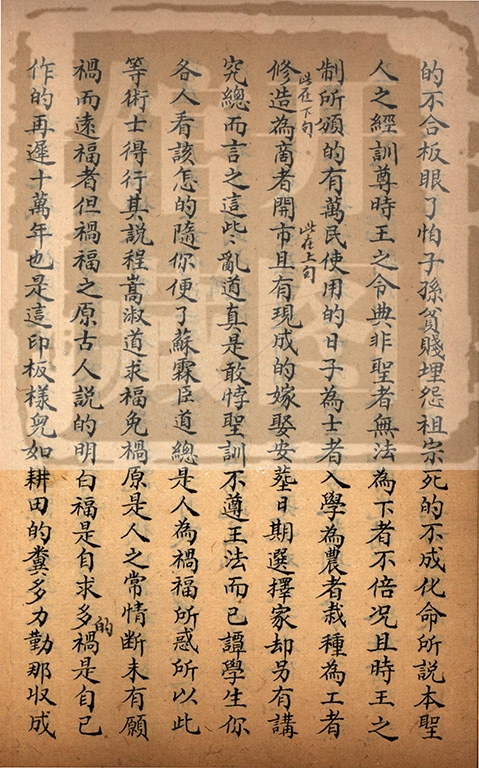 的不合板眼了怕子孫貧賤埋怨祖宗死的不成化命所說本聖
人之經訓尊時王之令典非聖者無法為下者不倍况且時王之
制所頒的有萬民使用的日子為士者入學為農者栽種為工者
此在下句
此在上句
修造為商者開市且有現成的嫁娶安塟日期選擇家却另有講
究總而言之這些亂道真是敢悖聖訓不遵王法而已譚學生你
各人看該怎的隨你便了蘇霖臣道總是人為禍福所惑所以此
等術士得行其說程嵩淑道求福免禍原是人之常情断未有願
禍而遠福者但禍福之原古人說的明白福是自求多的禍是自己
作的再遲十萬年也是這印板樣兒如耕田的糞多力勤那収成